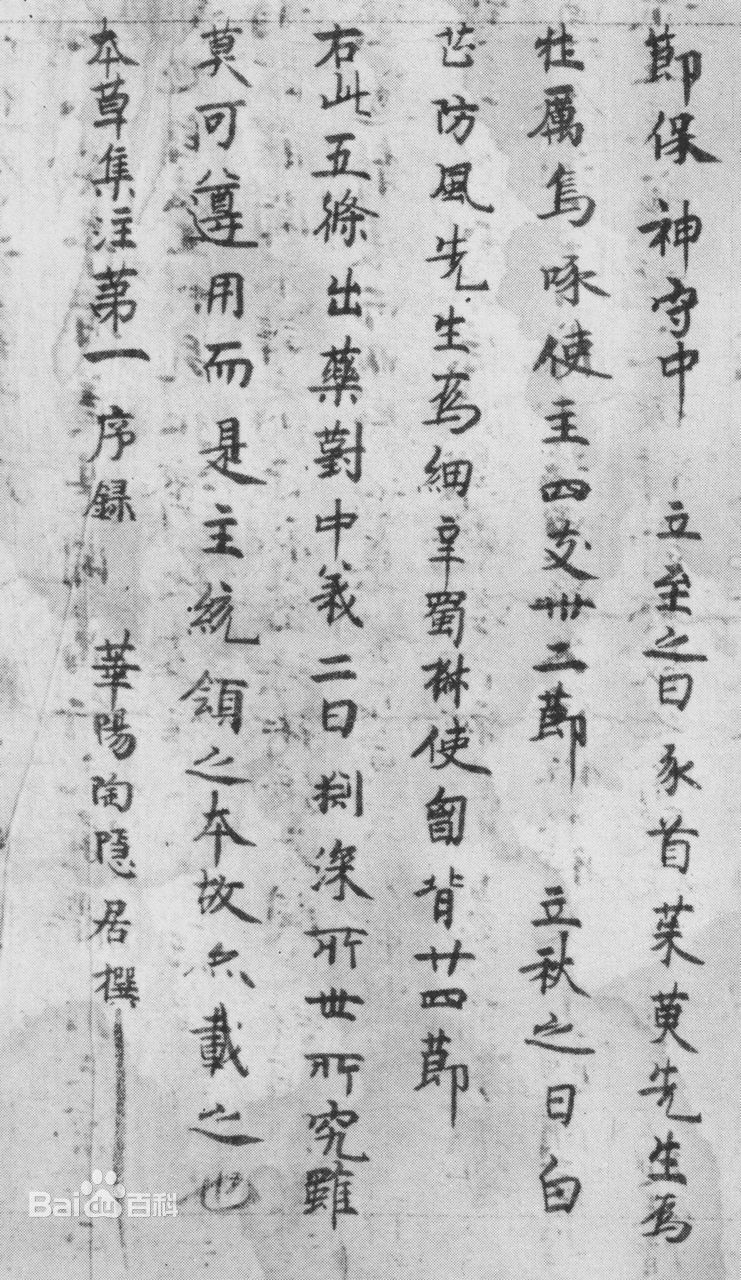 節保神守中　立冬之日豕首茱萸先生爲
牡厲烏啄使主四支卅二節　立秋之日白
芷防風先生爲細辛蜀椒使匈背廿四節
右此五條出藥對中義二曰㓨深所世所究雖
莫可遵用而是主統領之本故亦載之也
本草集注第一序録　華陽陶隱居撰
Baidu百科